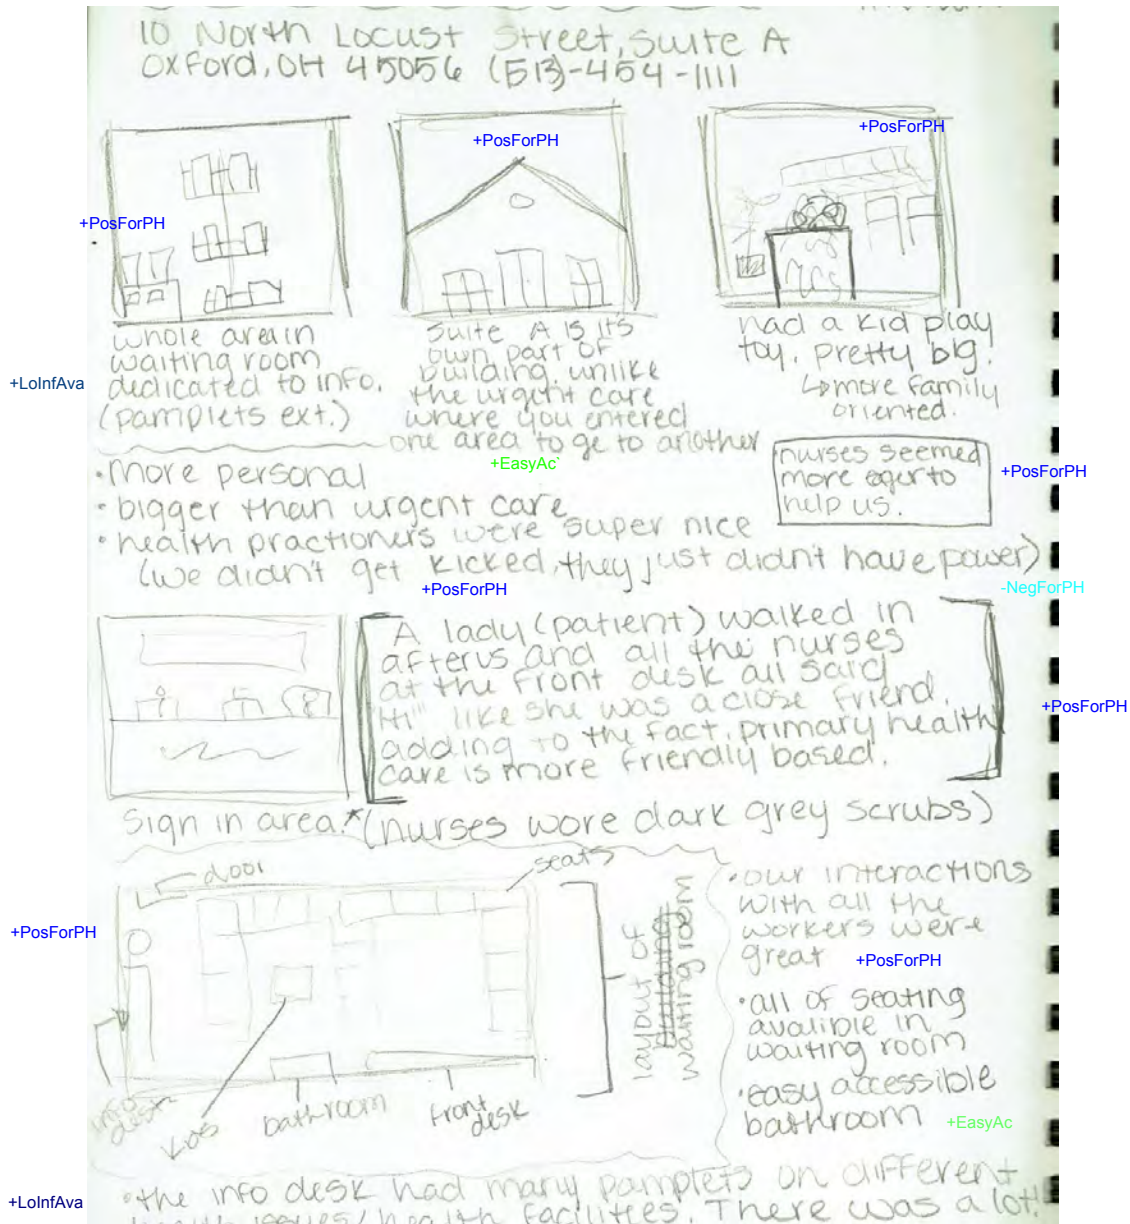 10 North Locust Street, Suite A
Oxford, OH 45056 (513)-454-1111
+PosForPH
+PosForPH
+PosForPH
whole area in
waiting room
dedicated to info.
(pamplets ext.)
+LoInfAva
Suite A is its
own part of
building, unlike
the urgent care
where you entered
one area to ge to another
+EasyAc`
had a kid play
toy. pretty big.
↳more family
oriented.
•nurses seemed
more eger to
help us.
+PosForPH
•more personal
•bigger than urgent care
•health practioners were super nice
(we didn't get kicked, they just didn't have power)
+PosForPH
-NegForPH
A lady (patient) walked in
after us and all the nurses
at the front desk all said
"Hi" like she was a close friend.
adding to the fact, primary health
care is more friendly based.
+PosForPH
Sign in area.*(nurses wore dark grey scrubs)
door
seats
+PosForPH
layout of
building
waiting room
info
desk
kids
bathroom
front
desk
•our interactions
with all the
workers were
great
+PosForPH
•all of seating
avalible in
waiting room
•easy accessible
bathroom
+EasyAc
+LoInfAva
•the info desk had many pamplets on different
health issues/health facilities. There was a lot!